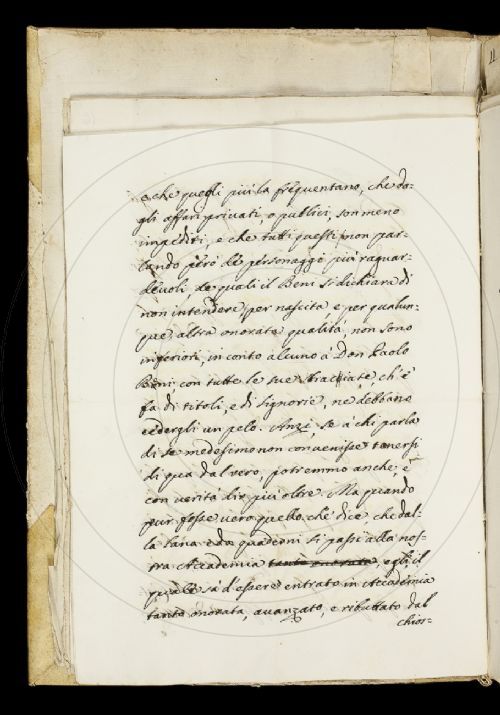 e che quegli più la frequentano, che da-
gli affari privati, o publici, son meno
impediti, e che tutti questi, non par-
lando però de' personaggi più raguar-
devoli, de quali il Beni si dichiara di
non intendere, per nascita, e per qualun-
que altra onorata qualità, non sono
inferiori, in conto alcuno a Don Paolo
Beni, con tutte le sue ch' e'
fa di titoli, e di signorie, ne debbano
cedergli un pelo. Anzi, se a chi parla
di se medesimo non convenisse tenersi
di qua dal vero, potremmo anche, e
con verità dir più oltre. Ma quando
pur fosse vero quello, che dice, che dal-
la e da quaderni si passi alla nos-
tra Accademia tanto onorata, egli il
quale sa d'essere entrato in Accademia
tanto onorata, avanzato, e ributtato dal
chios-
11